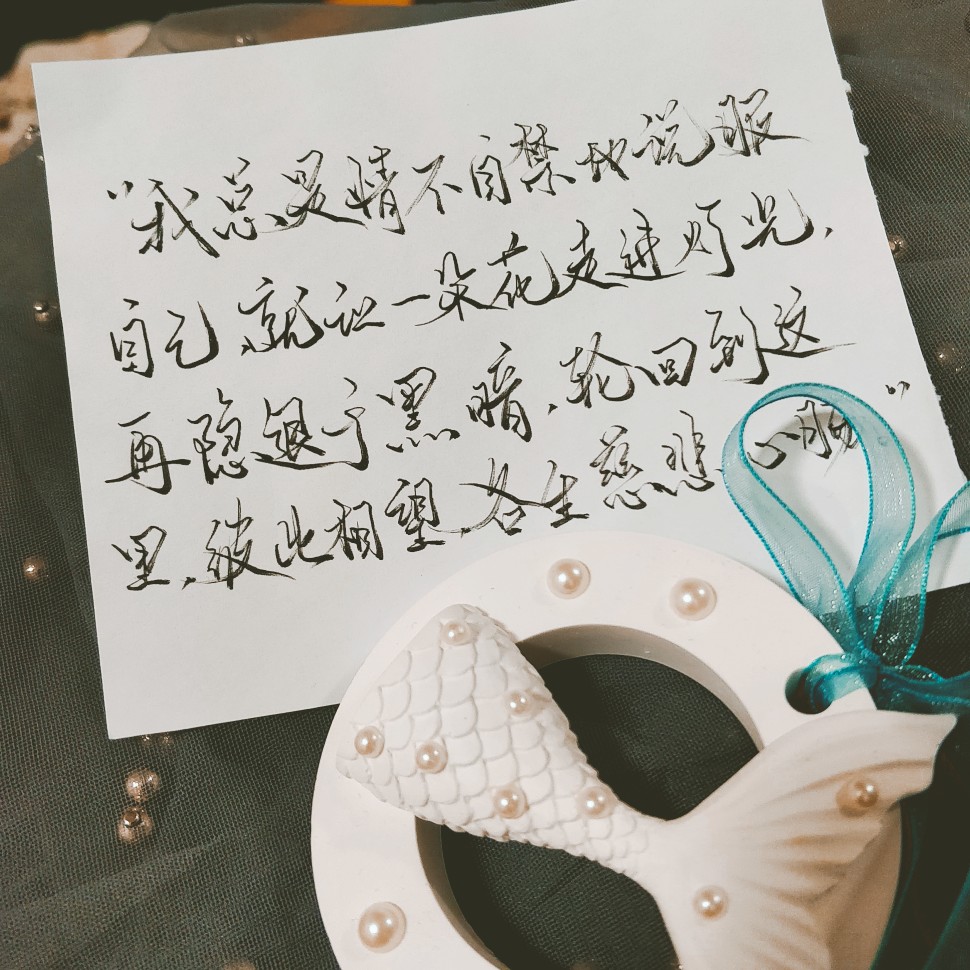 “我总是情不自禁地说服
自己,就让一朵花走进灯光,
再隐退于黑暗,轮回到这
里,彼此相望,各生慈悲心肠”